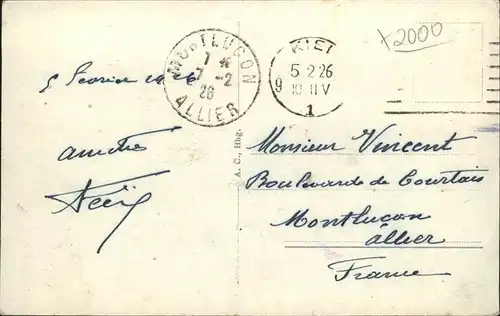 x2000
MONTLUCON
7 -2
26
ALLIER
KIEL
5 2.26
9 10-11 V
1
5 Fevrier 1926
amitiés
A. C., Hbg.
Monsieur Vincent
Boulevard de Courtais
Montluçon
Allier
France